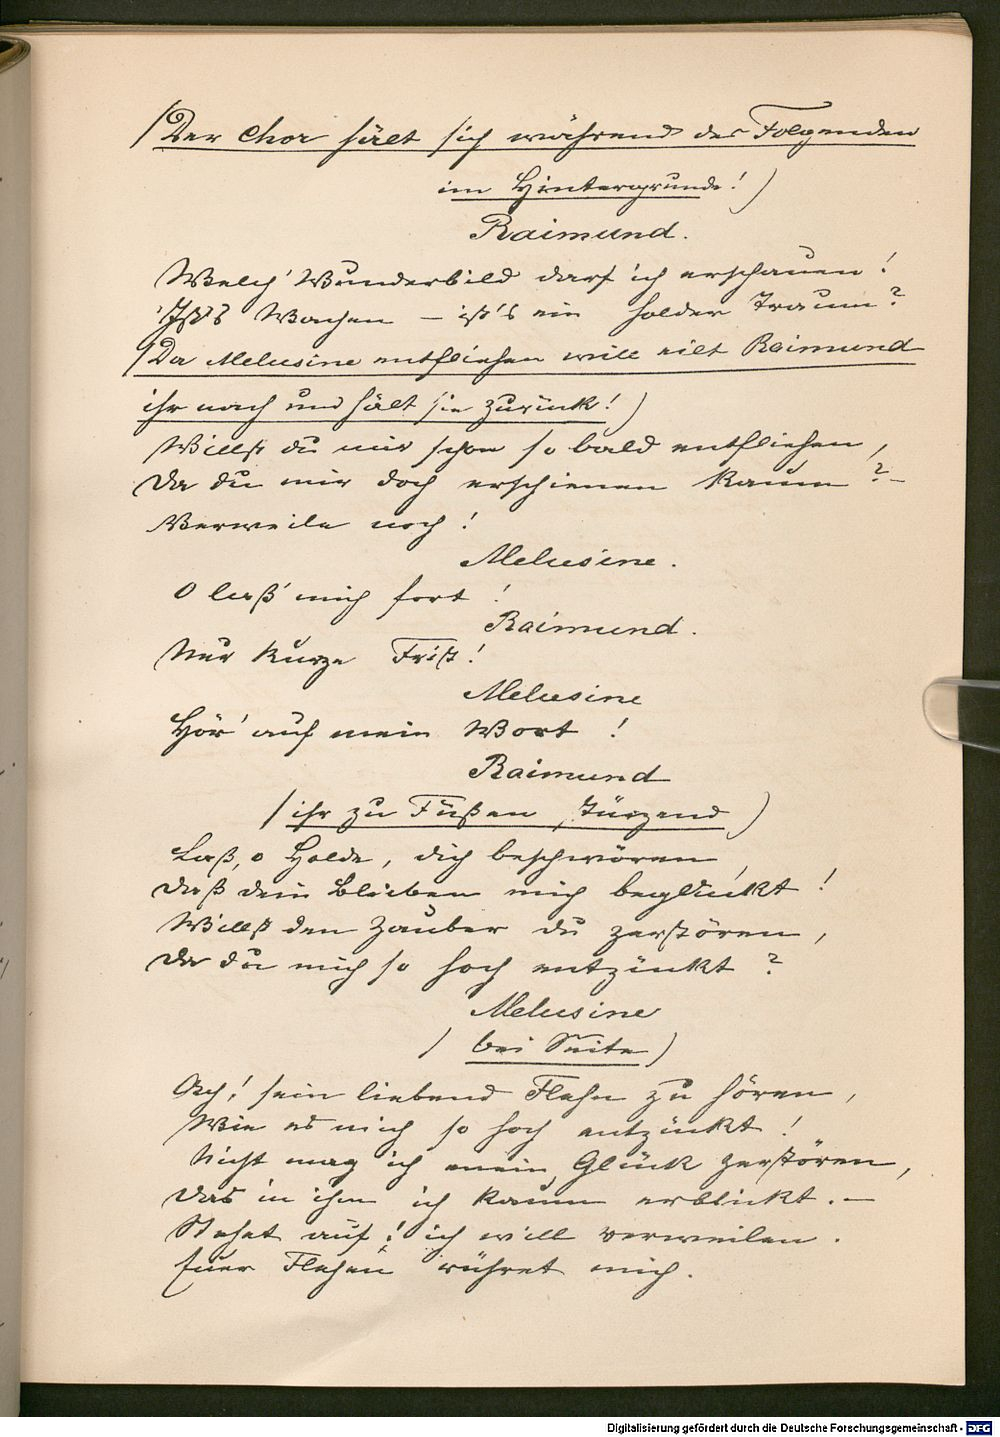 (Der Chor hält sich während des Folgenden
im Hintergrunde!)
Raimund.
Welch' Wunderbild darf ich erschauen!
Ist's Wachen – ist's ein holder Traum?
(Da Melusine entfliehen will eilt Raimund
ihr nach und hält sie zurück!)
Willst du mir schon so bald entfliehen,
Da du mir doch erschienen kaum? –
Verweile noch!
Melusine.
O laß' mich fort!
Raimund.
Nur kurze Frist!
Melusine
Hör' auf mein Wort!
Raimund
(ihr zu Füßen stürzend)
Laß, o Holde, dich beschwören,
Daß dein Bleiben mich beglückt!
Willst den Zauber du zerstören,
Da du mich so hoch entzückt?
Melusine
(bei Seite)
Ach! sein liebend Flehn zu hören,
Wie es mich so hoch entzückt!
Nicht mag ich mein Glück zerstören,
Das in ihm ich kaum erblickt. –
Stehet auf! ich will verweilen.
Euer Flehen rühret mich.
Digitalisierung gefördert durch die Deutsche Forschungsgemeinschaft - DFG